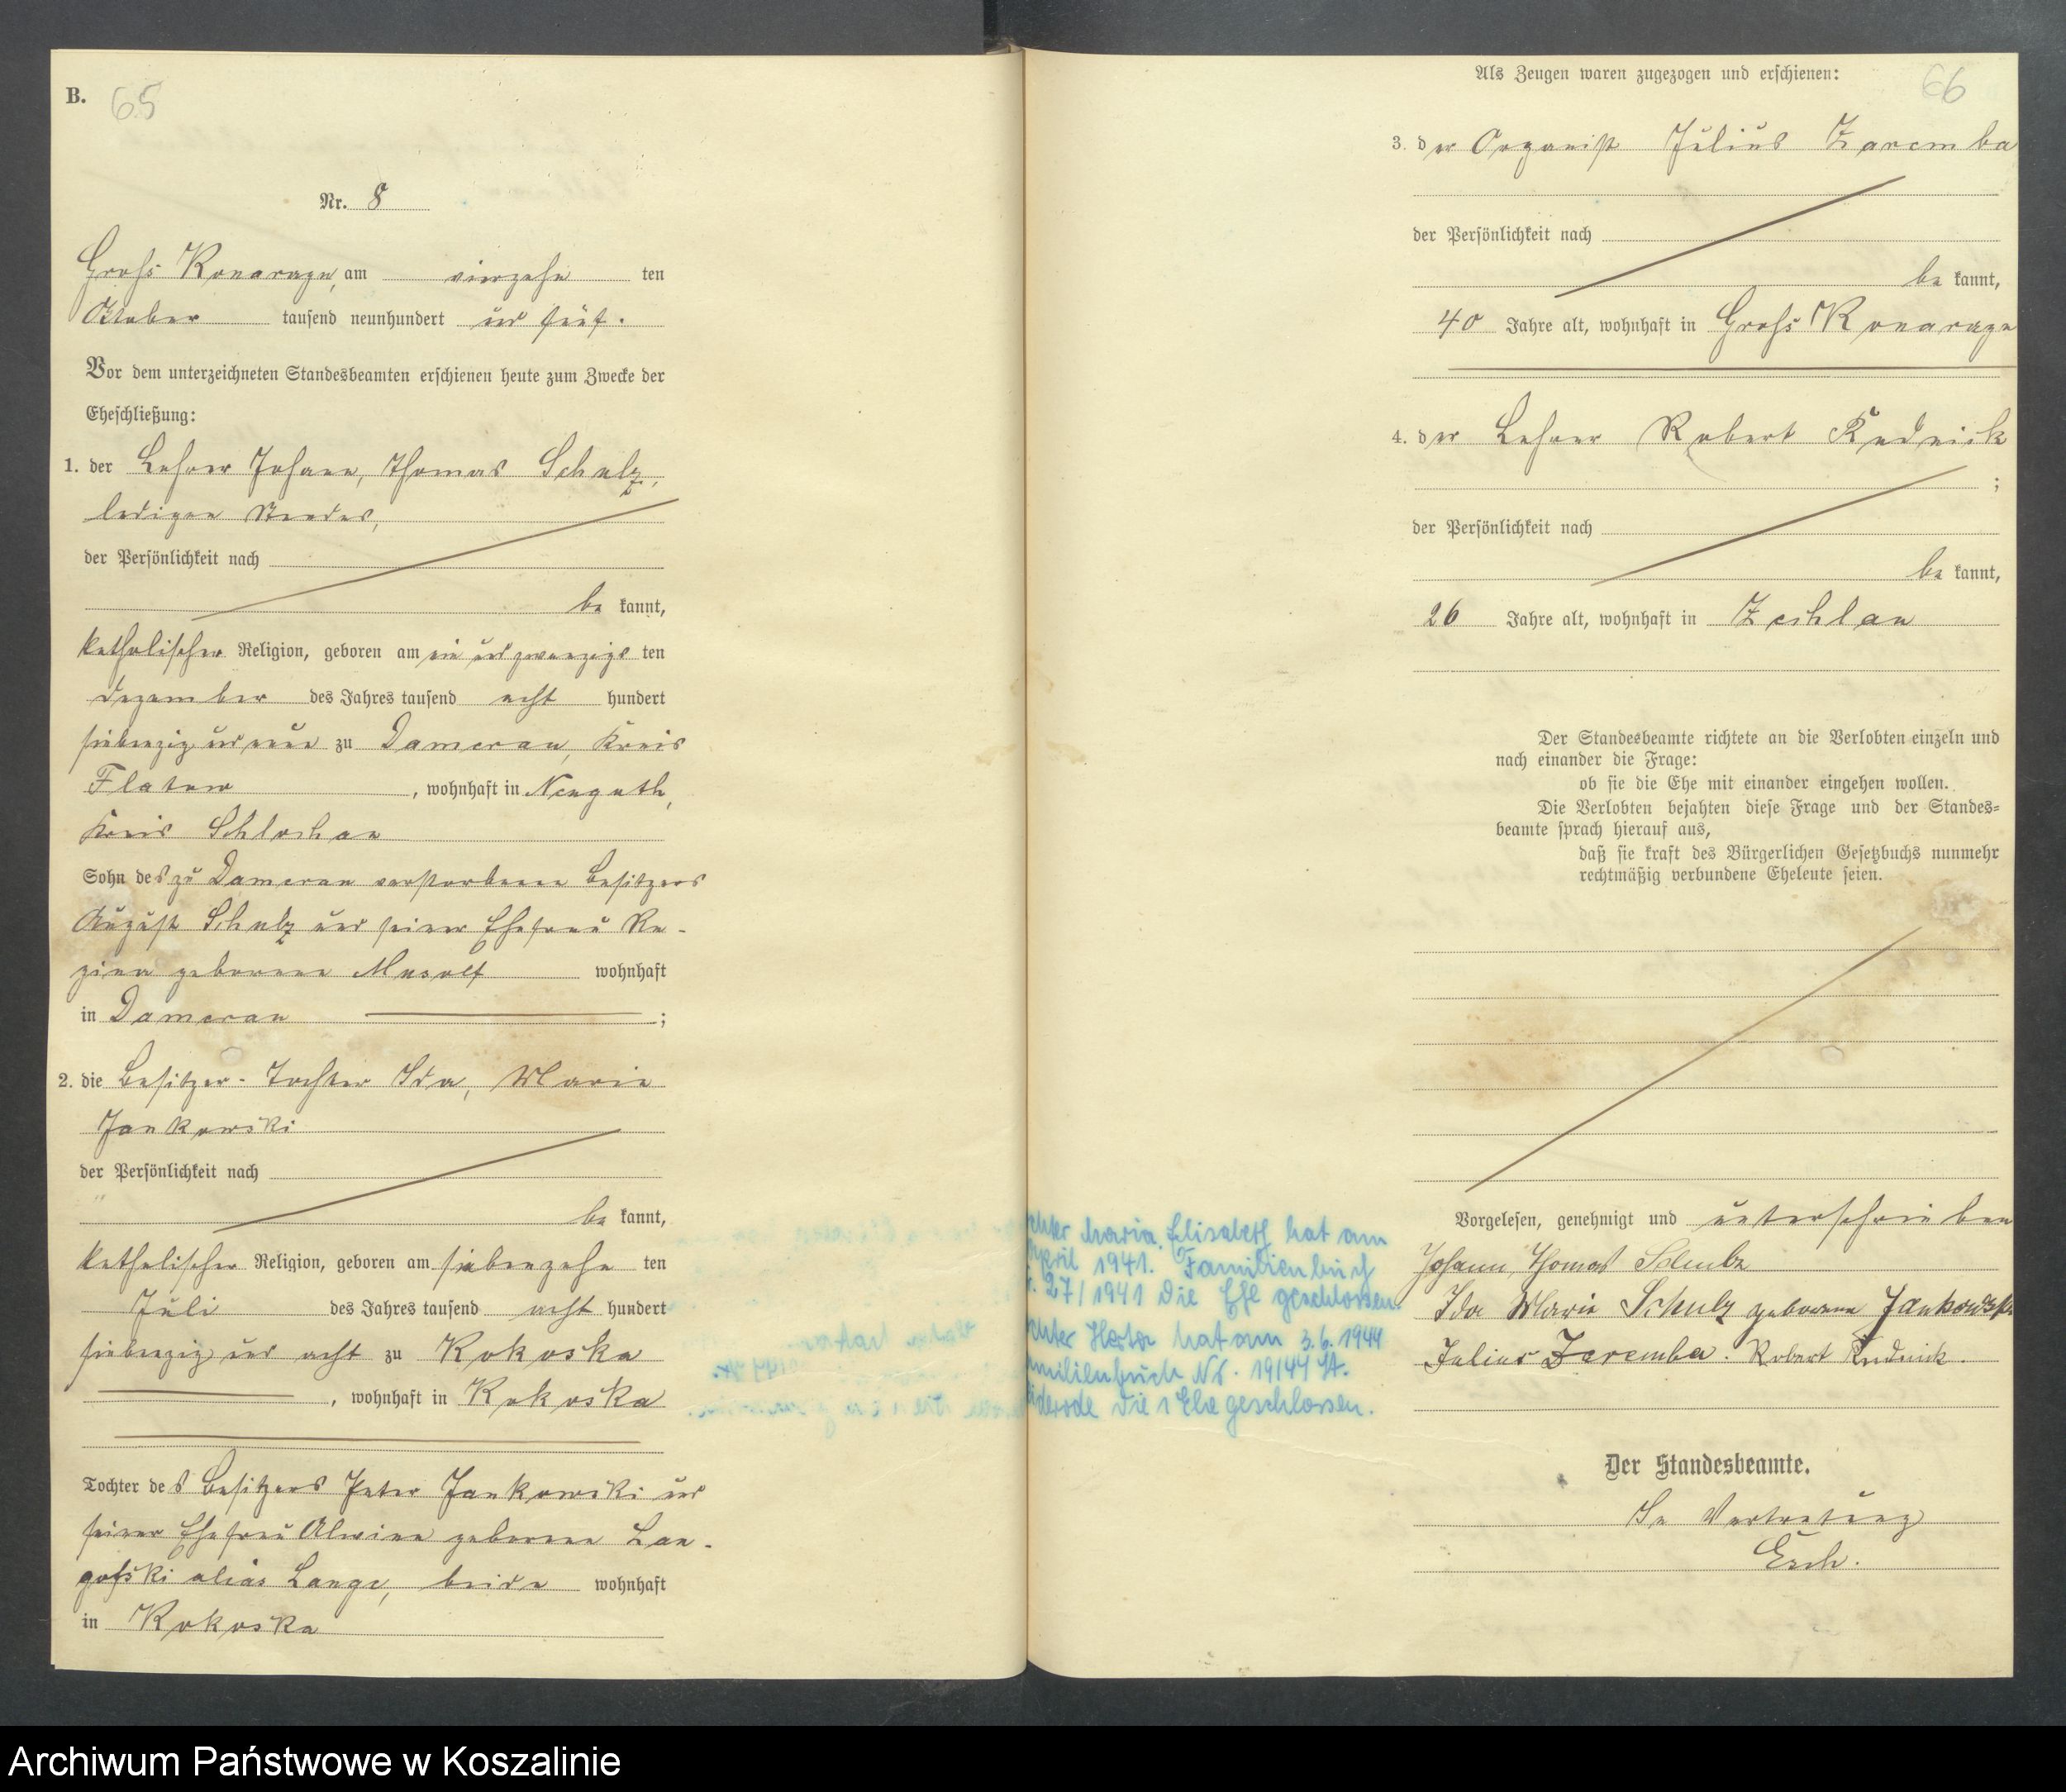 B. 65
Nr. 8
Groß Konarczyn, am vierzehn ten
Oktober tausend neunhundert und fünf.
Vor dem unterzeichneten Standesbeamten erschienen heute zum Zwecke der
Eheschließung:
1. der Lehrer Johann, Thomas Schulz,
ledigen Standes,
der Persönlichkeit nach
be kannt,
katholischer Religion, geboren am ein und zwanzigs ten
Dezember des Jahres tausend acht hundert
siebenzig und neun zu Damerau, Kreis
Flatow, wohnhaft in Neuguth,
Kreis Schlochau
Sohn des zu Damerau verstorbenen Besitzers
August Schulz und seiner Ehefrau Re-
gina geborenen Musolf wohnhaft
in Damerau ;
2. die Besitzer-Tochter Ida, Marie
Jankowski
der Persönlichkeit nach
be kannt,
katholischer Religion, geboren am siebenzehn ten
Juli des Jahres tausend acht hundert
siebenzig und acht zu Kokoska
, wohnhaft in Kokoska
Tochter des Besitzers Peter Jankowski und
seiner Ehefrau Alwine geborenen Lan-
gofski alias Lange, beide wohnhaft
in Kokoska
66
Als Zeugen waren zugezogen und erschienen:
3. der Organist Julius Zaremba
der Persönlichkeit nach
be kannt,
40 Jahre alt, wohnhaft in Groß Konarczyn
4. der Lehrer Robert Rudnick
;
der Persönlichkeit nach
be kannt,
26 Jahre alt, wohnhaft in Zechlau
Der Standesbeamte richtete an die Verlobten einzeln und
nach einander die Frage:
ob sie die Ehe mit einander eingehen wollen.
Die Verlobten bejahten diese Frage und der Standes=
beamte sprach hierauf aus,
daß sie kraft des Bürgerlichen Gesetzbuchs nunmehr
rechtmäßig verbundene Eheleute seien.
chter Maria Elisabeth hat am
April 1941. Familienbuch
27/1941 die Ehe geschlossen.
chter hat am 3.6.1944
milienbuch Nr. 19/44 St.
die 1 Ehe geschlossen.
Vorgelesen, genehmigt und unterschrieben
Johann Thomas Schulz
Ida Marie Schulz geborene Jankowski
Julius Zaremba. Robert Rudnick.
Der Standesbeamte.
In Vertretung
Esch.
Archiwum Państwowe w Koszalinie